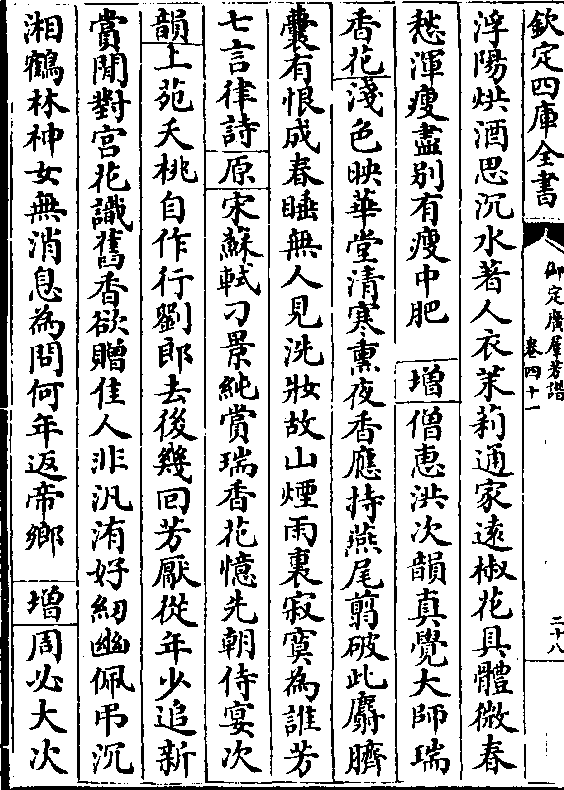 欽定四庫全書
御定廣羣芳譜
卷四十一
二十八
浮陽烘酒思沉水著人衣茉莉通家遠椒花具體微春
愁渾瘦盡别有瘦中肥 增 僧惠洪次韻真覺大師瑞
香花淺色映華堂清寒熏夜香應持燕尾剪破此麝臍
囊有恨成春睡無人見洗妝故山煙雨裏寂寞為誰芳
七言律詩 原 宋蘇軾刁景純賞瑞香花憶先朝侍宴次
韻上苑夭桃自作行劉郎去後幾回芳厭從年少追新
賞閒對宫花識舊香欲贈佳人非汎洧好紉幽佩弔沉
湘鶴林神女無消息為問何年返帝鄉 增 周必大次